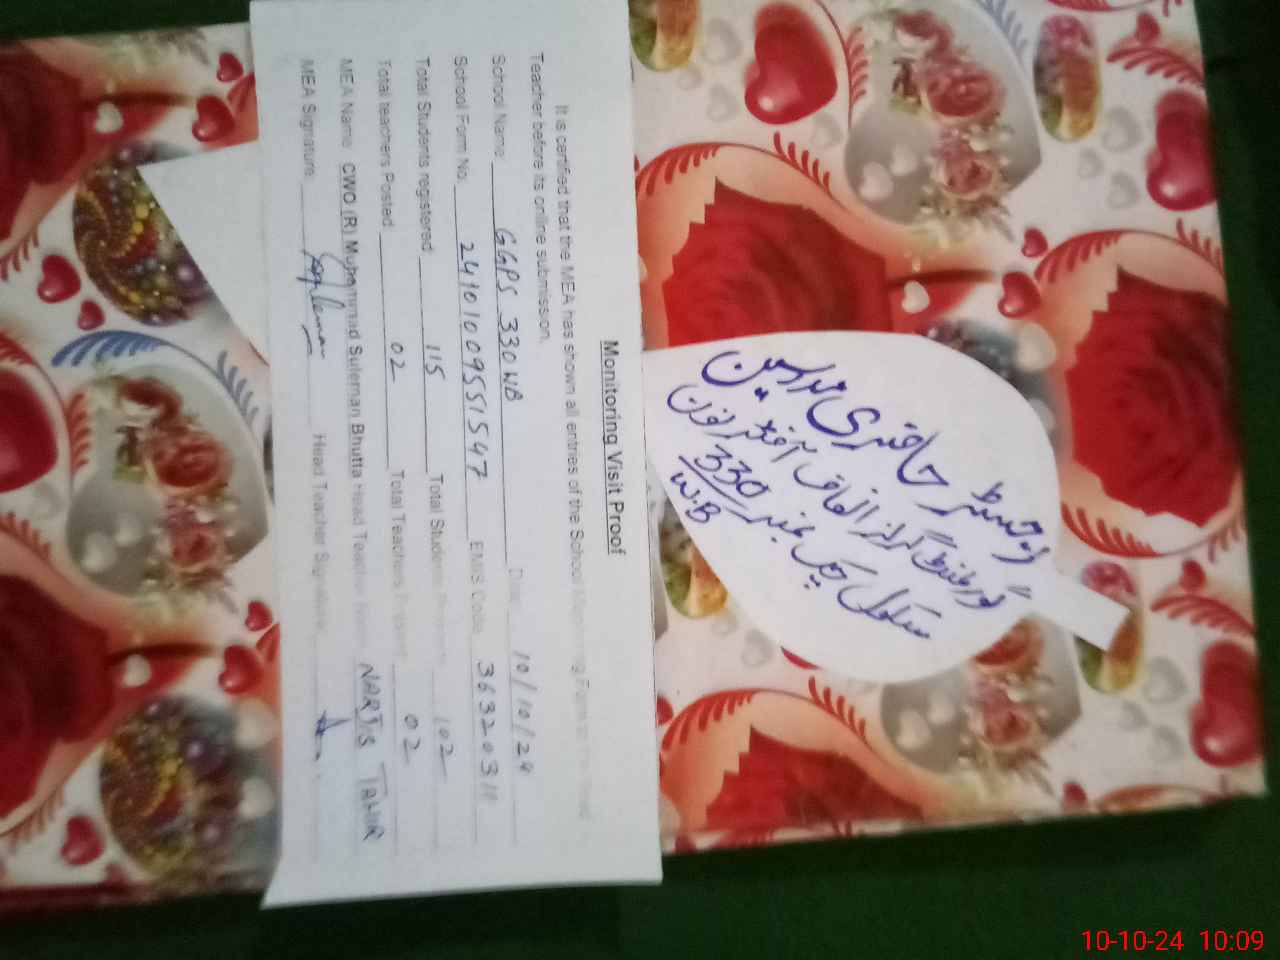 Monitoring Visit Proof
It is certified that the MEA has shown all entries of the School Monitoring Form to the Head
Teacher before its online submission.
School Name GGPS 330WB Date 10/10/24
School Form No. 24101009551547 EMIS Code 36320311
Total Students registered 115 Total Students Present 102
Total teachers Posted 02 Total Teachers Present 02
MEA Name CWO (R) Muhammad Suleman Bhutta Head Teacher Name NARJIS TAHIR
MEA Signature Head Teacher Signature
رجسٹر حاضری مدرسین
گورنمنٹ گرلز
سکول چک نمبر 330
W.B
10-10-24 10:09